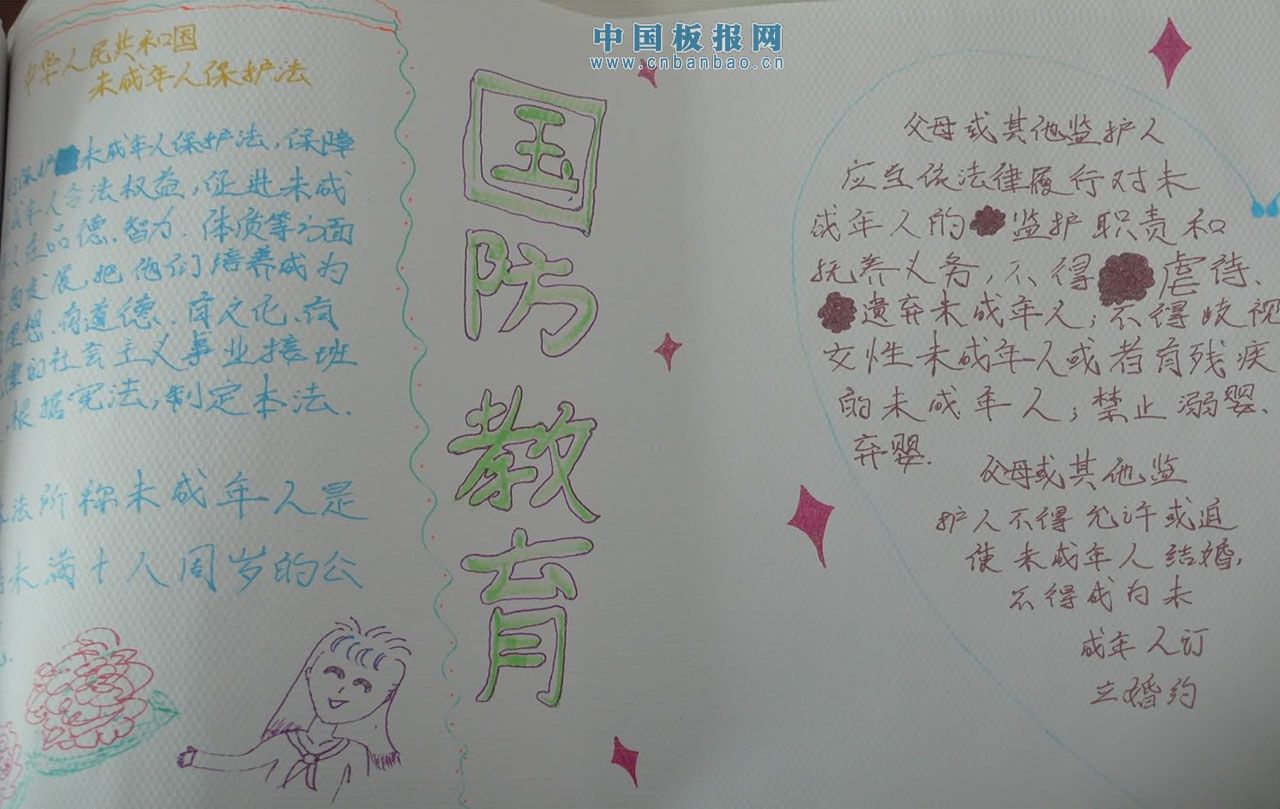 中国板报网
www.cnbanbao.cn
中华人民共和国
未成年人保护法
保护未成年人保护法,保障
成年人合法权益,促进未成
在品德、智力、体质等方面
面发展,把他们培养成为
理想、有道德、有文化、有
的社会主义事业接班
根据宪法,制定本法.
法所称未成年人是
未满十八周岁的公
国防教育
父母或其他监护人
应当依法律履行对未
成年人的监护职责和
抚养义务,不得虐待、
遗弃未成年人;不得歧视
女性未成年人或者有残疾
的未成年人;禁止溺婴、
弃婴.
父母或其他监
护人不得允许或迫
使未成年人结婚,
不得成为未
成年人订
立婚约